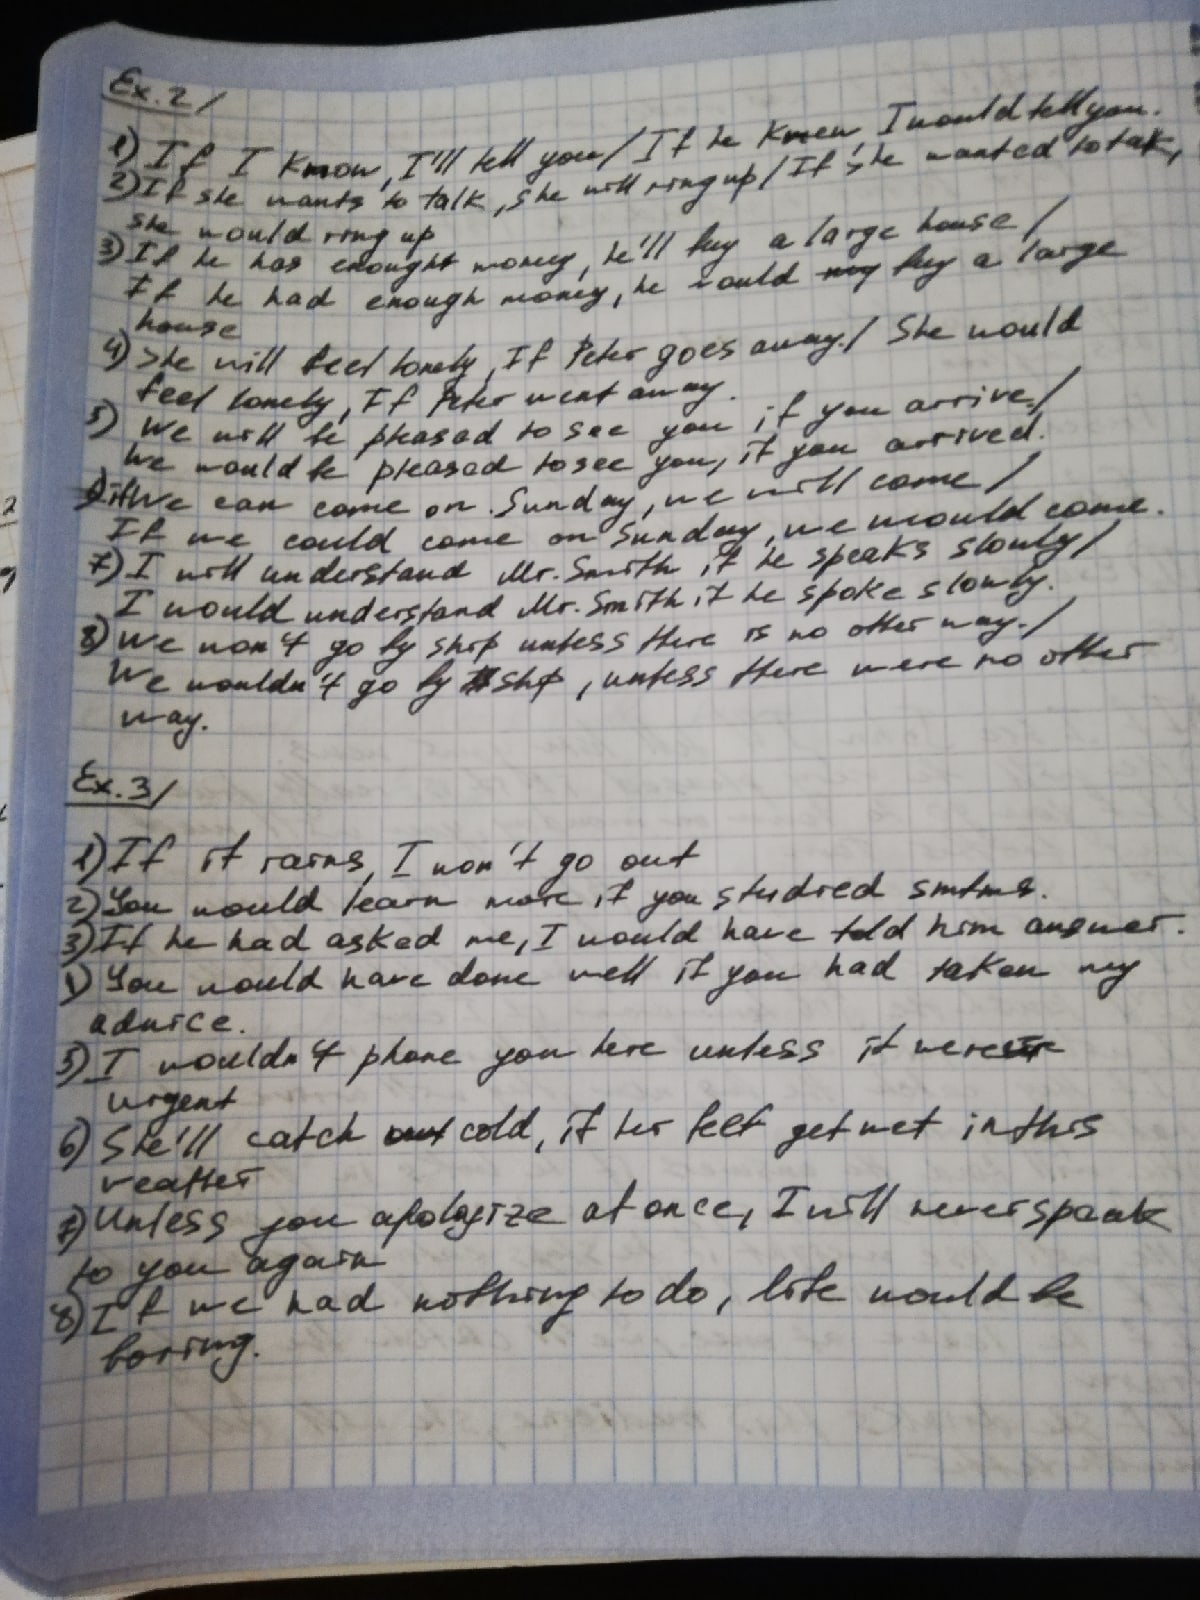 Ex.2/
1) If I know, I'll tell you/If he knew, I would tell you.
2) If she wants to talk, she will ring up/If she wanted to talk,
she would ring up
3) If he has enought money, he'll buy a large house/
If he had enough money, he would buy a large
house
4) She will feel lonely, If Peter goes away./ She would
feel lonely, If Peter went away.
5) We will be pleasad to see you if you arrive/
We would be pleasad to see you, if you arrived.
If we can come on Sunday, we will come/
If we could come on Sunday, we would come.
7) I will understand Mr. Smith if he speaks slowly/
I would understand Mr. Smith if he spoke slowly.
8) We won't go by ship unless there is no other way./
We wouldn't go by ship, unless there were no other
way.
Ex.3/
1) If it rains, I won't go out
2) You would learn more if you studied smtms.
3) If he had asked me, I would have told him answer.
You would have done well if you had taken my
advice.
5) I wouldn't phone you here unless it were
urgent
6) She'll catch cold, if her feet get wet in this
weather
7) Unless you apologize at once, I will never speak
to you again
8) If we had nothing to do, life would be
boring.